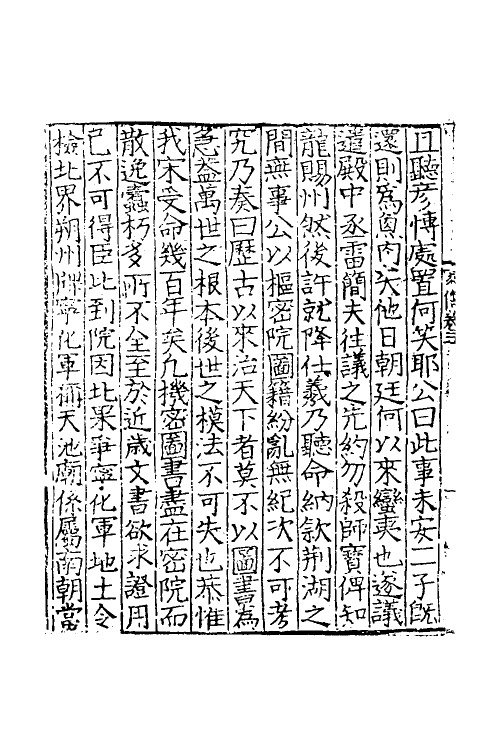 且聽彦博處置何笑耶公曰此事未安二子旣
還則爲魚肉矣他日朝廷何以來蠻夷也遂議
遣殿中丞雷簡夫往議之先約勿殺師寶俾知
龍賜州然後許就降仕羲乃聽命納欵荆湖之
間無事公以樞密院圖籍紛亂無紀次不可考
究乃奏曰歴古以來治天下者莫不以圖書爲
急葢萬世之根本後世之模法不可失也恭惟
我宋受命幾百年矣凡機密圖書盡在密院而
散逸蠹朽多所不全至於近歳文書欲求證用
已不可得臣比到院因北果爭寧化軍地土令
檢北界朔州牒寧化軍稱天池廟係屬南朝當